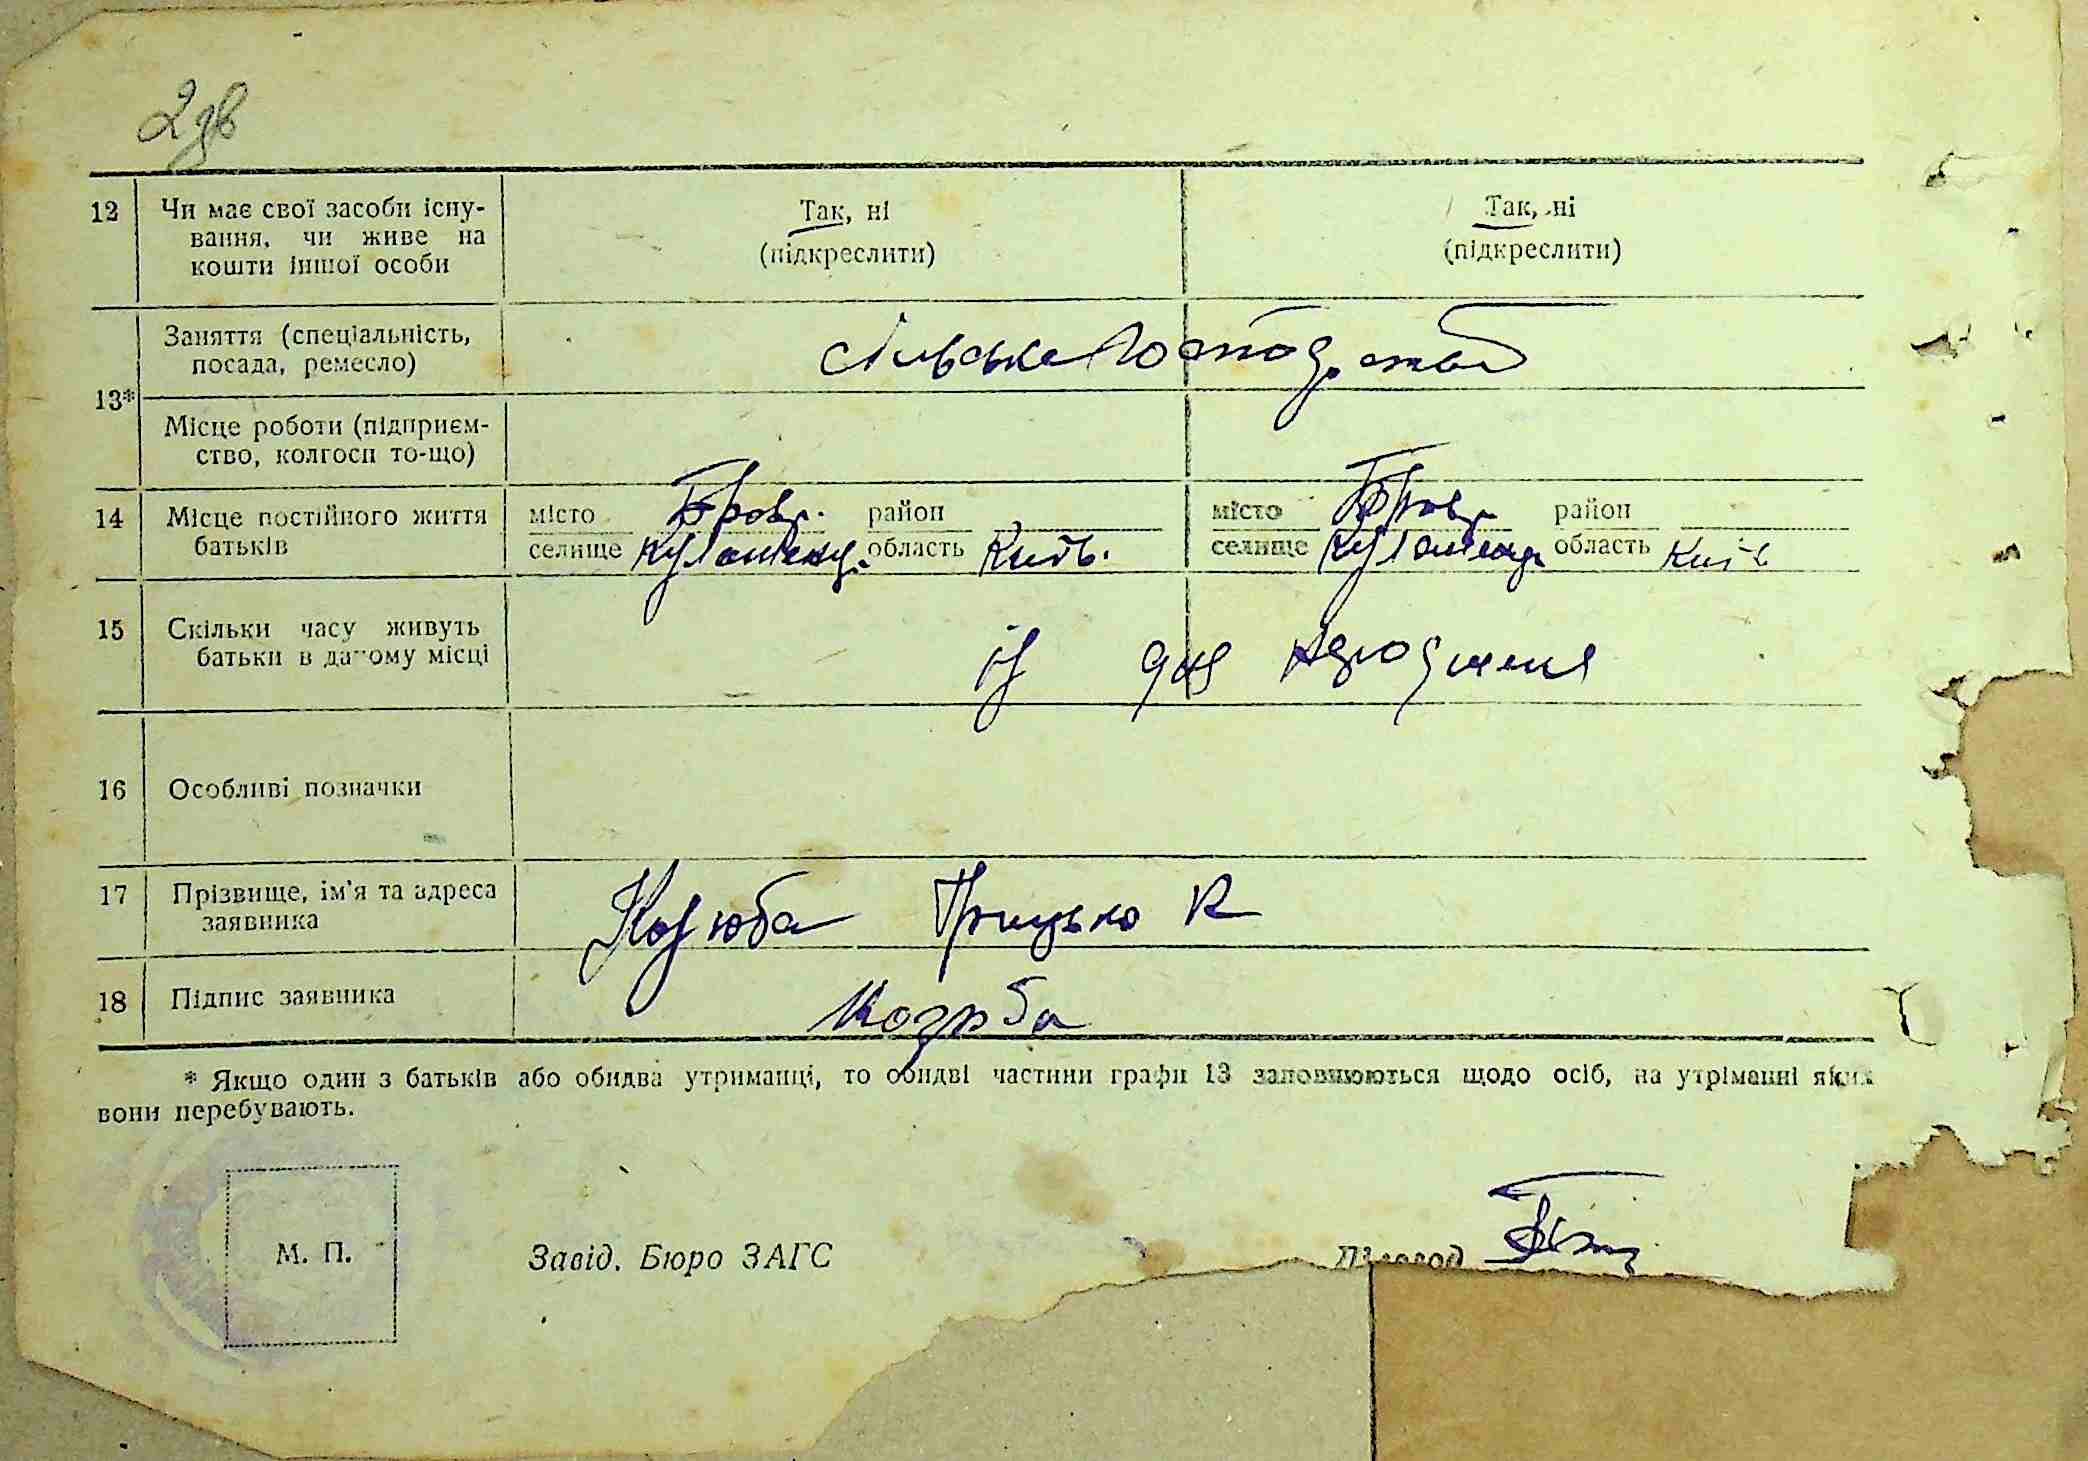 2зв
12 Чи має свої засоби існу- Так, ні Так, ні
вання, чи живе на (підкреслити) (підкреслити)
кошти іншої особи
13* Заняття (спеціальність, сільське господ. ство
посада, ремесло)
Місце роботи (підприєм-
ство, колгосп то-що)
14 Місце постійного життя місто Бровр. район місто Бровр район
батьків селище область Київ. селище область Київ
15 Скільки часу живуть
батьки в даному місці із дня народження
16 Особливі позначки
17 Прізвище, ім'я та адреса Козюба Грицько К
заявника
18 Підпис заявника Козюба
* Якщо один з батьків або обидва утриманці, то обидві частини графи 13 заповнюються щодо осіб, на утріманні яких
вони перебувають.
М. П. Завід. Бюро ЗАГС Діловод